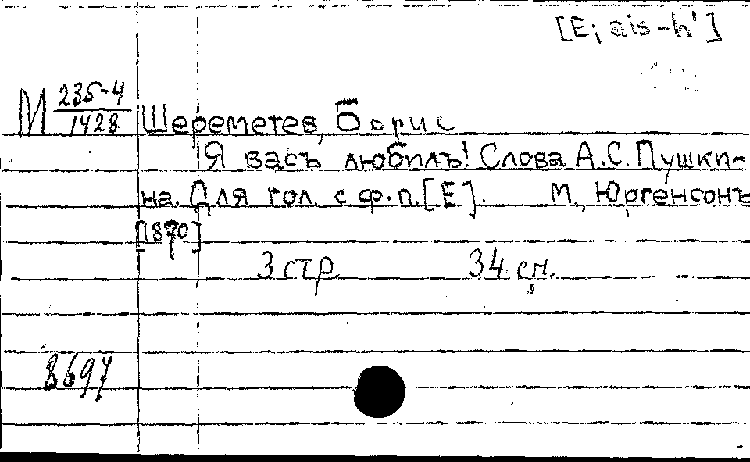 [E; ais-h']
М 235-4/1428
Шереметев, Борис
Я васъ любилъ! Слова А.С.Пушки-
на. Для гол. с ф.п. [E]. М., Юргенсонъ
[1870]
3 стр. 34 см.
8697